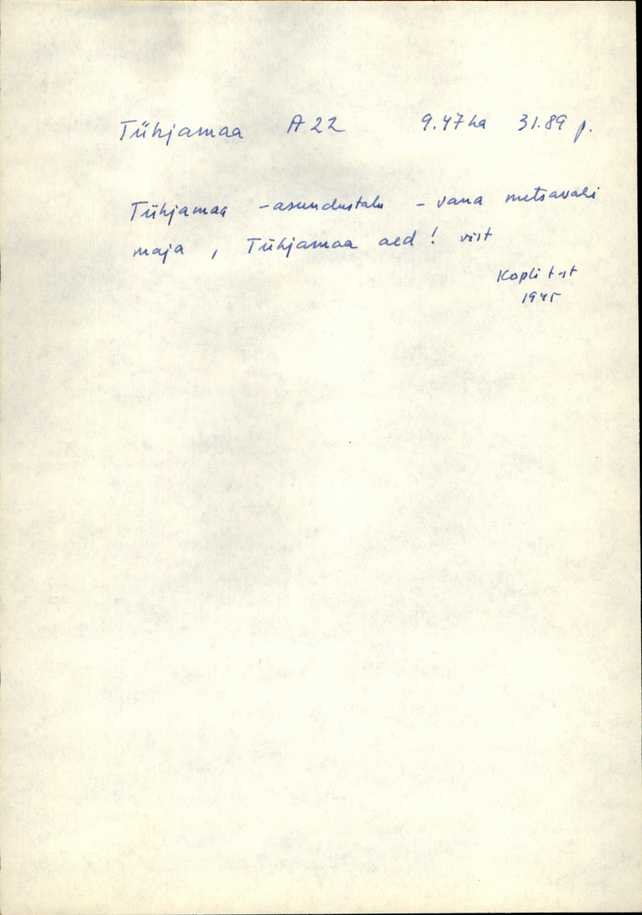 Tühjamaa A22 9.47ha 31.89 p.
Tühjamaa - asundustalu - vana metsavahi
maja, Tühjamaa aed! vist
Kopli t-st
1945